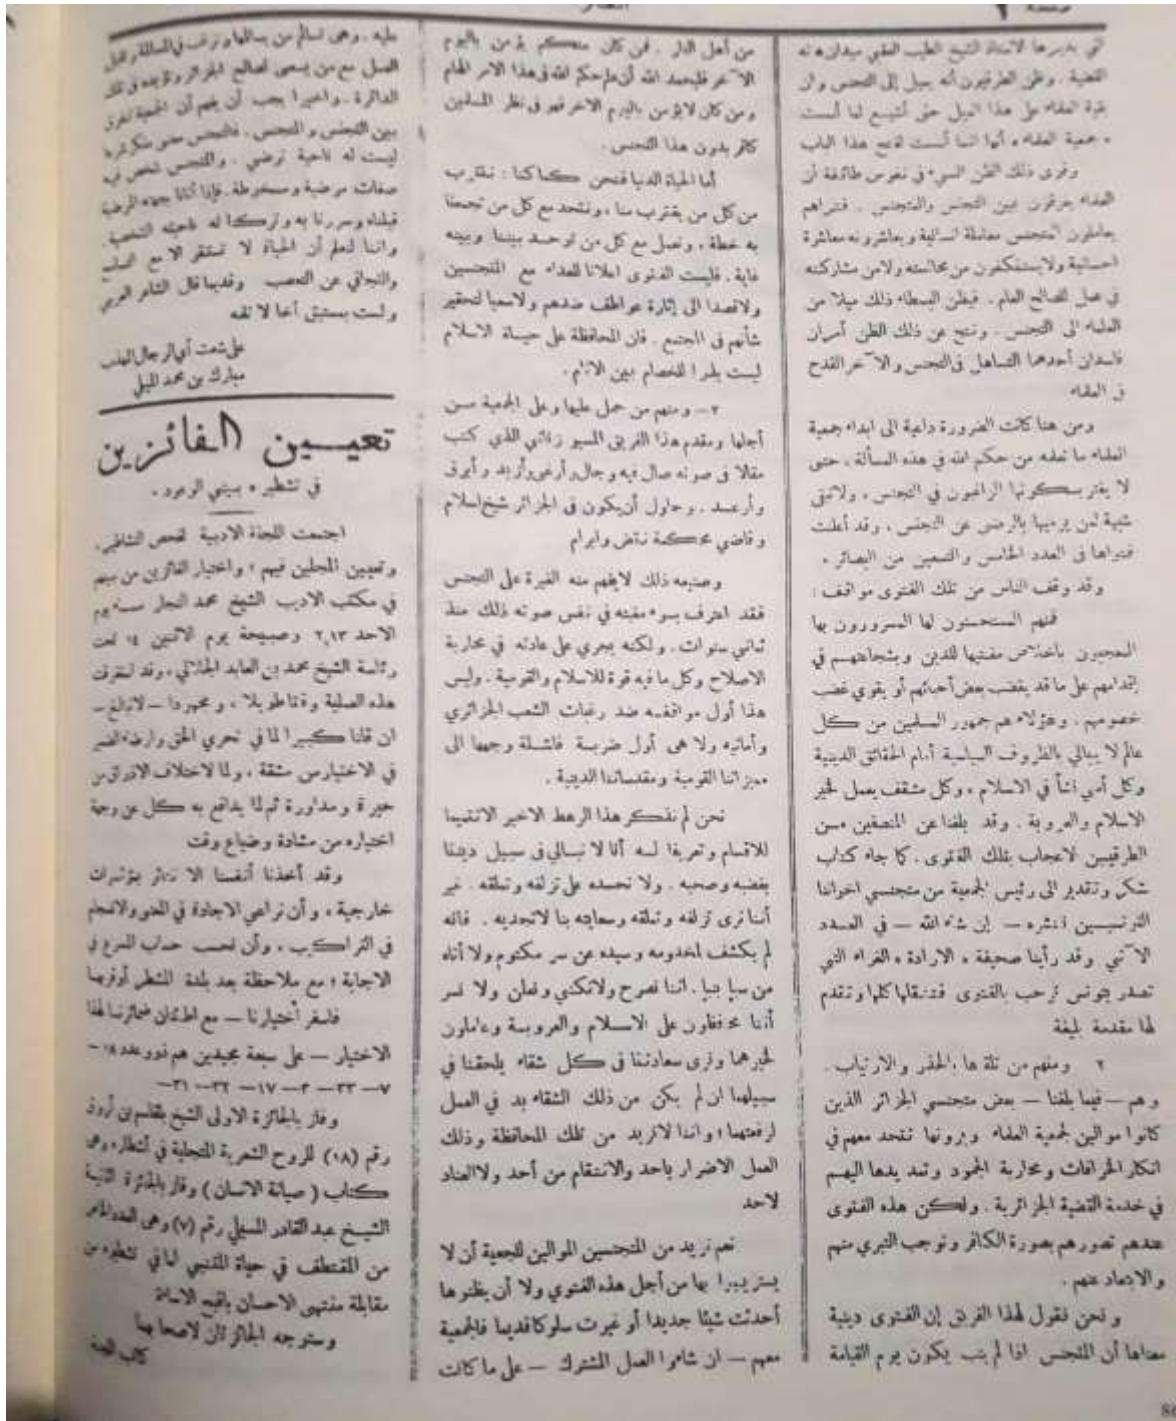 صفحة ٢
التي يديرها الاستاذ الشيخ الطيب العقبي ميدان هاته
القضية . وظن الطرقيون أنه يميل إلى التجنس وان
بقية العلماء على هذا الميل حتى أشيع لما أسست
« جمعية العلماء » أنها انما أسست لفتح هذا الباب
وقوى ذلك الظن السيء في نفوس طائفة أن
العلماء يفرقون بين التجنس والمتجنس . فتراهم
يعاملون المتجنس معاملة انسانية ويعاشرونه معاشرة
احسانية ولا يستنكفون من مجالسته ولا من مشاركته
في عمل للصالح العام . فيظن البسطاء ذلك ميلا من
العلماء الى التجنس . ونتج عن ذلك الظن أمران
فاسدان أحدهما التساهل في التجنس والآخر القدح
في العلماء
ومن هنا كانت الضرورة داعية الى ابداء جمعية
العلماء ما تعلمه من حكم الله في هذه المسألة ، حتى
لا يغتر بسكوتها الراغبون في التجنس ، ولا تبقى
شبهة لمن يرميها بالرضى عن التجنس ، وقد أعلنت
فتواها في العدد الخامس والتسعين من البصائر .
وقد وقف الناس من تلك الفتوى مواقف :
فمنهم المستحسنون لها المسرورون بها
المعجبون باخلاص مفتيها للدين وبشجاعتهم في
إقدامهم على ما قد يغضب بعض أحبائهم أو يقوي غضب
خصومهم . وهؤلاء هم جمهور المسلمين من كل
عالم لا يبالي بالظروف السياسية أمام الحقائق الدينية
وكل أمي نشأ في الاسلام ، وكل مثقف يعمل لخير
الاسلام والعروبة . وقد بلغنا عن المنصفين من
الطرقيين لاعجاب بتلك الفتوى . كما جاء كتاب
شكر وتقدير الى رئيس الجمعية من متجنسي اخواننا
التونسيين ننشره — إن شاء الله — في العدد
الآتي وقد رأينا صحيفة « الارادة » الغراء التي
تصدر بتونس ترحب بالفتوى فتنقلها كلها وتقدم
لها مقدمة بليغة
٢ ومنهم من تلقاها بالحذر والارتياب .
وهم — فيما بلغنا — بعض متجنسي الجزائر الذين
كانوا موالين لجمعية العلماء ويرونها تتحد معهم في
انكار الخرافات ومحاربة الجمود وتمد يدها اليهم
في خدمة القضية الجزائرية . ولكن هذه الفتوى
عندهم تصورهم بصورة الكافر وتوجب التبري منهم
والابتعاد عنهم .
و نحن نقول لهذا الفريق إن الفتوى دينية
معناها أن المتجنس اذا لم يتب يكون يوم القيامة
من أهل النار . فمن كان منكم يؤمن باليوم
الآخر فليحمد الله أن علم حكم الله في هذا الامر الهام
ومن كان لا يؤمن باليوم الآخر فهو في نظر المسلمين
كافر بدون هذا التجنس .
أما الحياة الدنيا فنحن كما كنا : نقترب
من كل من يقترب منا ، ونتحد مع كل من تجمعنا
به خطة ، ونعمل مع كل من توحد بيننا وبينه
غاية . فليست الفتوى اعلانا للعداء مع المتجنسين
ولا قصدا الى إثارة عواطف ضدهم ولا سعيا لتحقير
شأنهم في المجتمع . فان المحافظة على حياة الاسلام
ليست بذرا للخصام بين الانام .
٣- ومنهم من حمل عليها وعلى الجمعية من
أجلها ومقدم هذا الفريق المسيو زناتي الذي كتب
مقالا في صوته صال فيه وجال وأرغى وأزبد وأبرق
وأرعد . وحاول أن يكون في الجزائر شيخ اسلام
وقاضي محكمة نقض وابرام
وصنيعه ذلك لا يفهم منه الغيرة على التجنس
فقد اعترف بسوء مغبته في نفس صوته ذلك منذ
ثماني سنوات . ولكنه يجري على عادته في محاربة
الاصلاح وكل ما فيه قوة للاسلام والقومية . وليس
هذا أول مواقفه ضد رغبات الشعب الجزائري
وأمانيه ولا هي أول ضربة فاشلة وجهها الى
مميزاتنا القومية ومقدساتنا الدينية .
نحن لم نذكر هذا الرهط الاخير الا تتميما
للاقسام وتعريفا له أنا لا نبالي في سبيل ديننا
بغضبه وصخبه . ولا نحسده على تزلفه وتملقه . غير
أننا نرى تزلفه وتملقه وسعايته بنا لا تجديه . فانه
لم يكشف لمخدومه وسيده عن سر مكتوم ولا أتاه
من سبإ بنبإ . اننا نصرح ولا نكني ونعلن ولا نسر
أننا محافظون على الاسلام والعروبة وعاملون
لخيرهما ونرى سعادتنا في كل شقاء يلحقنا في
سبيلهما ان لم يكن من ذلك الشقاء بد في العمل
لرفعتهما ؛ واننا لا نريد من تلك المحافظة وذلك
العمل الاضرار باحد والانتقام من أحد ولا العناد
لاحد
نعم نريد من المتجنسين الموالين للجمعية أن لا
يستريبوا بها من أجل هذه الفتوى ولا أن يظنوها
أحدثت شيئا جديدا أو غيرت سلوكا قديما فالجمعية
معهم — ان شاءوا العمل المشترك — على ما كانت
عليه . وهي تسالم من يسالمها وترغب في المسالمة وتقبل
العمل مع من يسعى لصالح الجزائر وتؤيده في تلك
الدائرة . واخيرا يجب أن يفهم أن الجمعية تفرق
بين التجنس والمتجنس . فالتجنس معنى منكر شرعا
ليست له ناحية ترضي . والمتجنس شخص فيه
صفات مرضية ومسخوطة . فإذا أتانا بجهته المرضية
قبلناه وسررنا به وتركنا له ناحيته الشخصية .
واننا لنعلم أن الحياة لا تستقر الا مع التسامح
والتجافي عن التعصب وقديما قال الشاعر العربي
ولست بمستبق أخا لا تلمه
على شعث أي الرجال المهذب
مبارك بن محمد الميلي
تعيين الفائزين
في تشطير « بيتي الوعود »
اجتمعت اللجنة الادبية لفحص التشاطير ،
وتعيين المجلين فيهم ؛ واختيار الفائزين من بينهم
في مكتب الاديب الشيخ محمد النجار مساء يوم
الاحد ٢،١٣ وصبيحة يوم الاثنين ١٤ تحت
رئاسة الشيخ محمد بن العابد الجلالي ، وقد استغرقت
هذه العملية وقتا طويلا ، ومجهودا — لا نبالغ —
ان قلنا كبيرا لما في تحري الحق وارضاء الضمير
في الاختيار من مشقة ، ولما لاختلاف الاذواق من
حيرة ومداورة ثم لما يدافع به كل عن وجهة
اختياره من مشادة وضياع وقت
وقد أخذنا أنفسنا الا نتأثر بمؤثرات
خارجية ، وأن نراعي الاجادة في المعنى والانسجام
في التراكيب ، وأن نحسب حساب المسرع في
الاجابة ؛ مع ملاحظة بعد بلدة المشطر أو قربها
فاسفر اختيارنا — مع اطمئنان ضمائرنا لهذا
الاختيار — على سبعة مجيدين هم ذوو عدد ١٨ —
٧ — ٣٣ — ٣ — ١٧ — ٢٢ — ٣١ —
وفاز بالجائزة الاولى الشيخ بلقاسم بن أروق
رقم (١٨) للروح الشعرية المتجلية في تشطاره وهي
كتاب ( صيانة الانسان ) وفاز بالجائزة الثانية
الشيخ عبد القادر المسيلي رقم (٧) وهي العدد الخاص
من المقتطف في حياة المتنبي لما في تشطيره من
مقابلة منتهى الاحسان باقبح الاساءة
وستوجه الجائزتان لاصحابهما
كاتب اللجنة